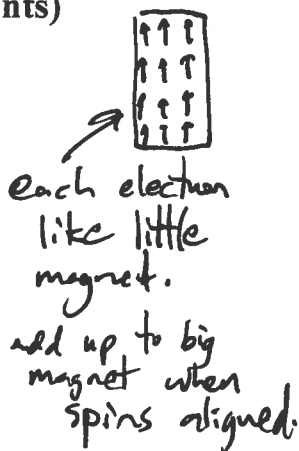 nts)
each electron
like little
magnet.
add up to big
magnet when
spins aligned.